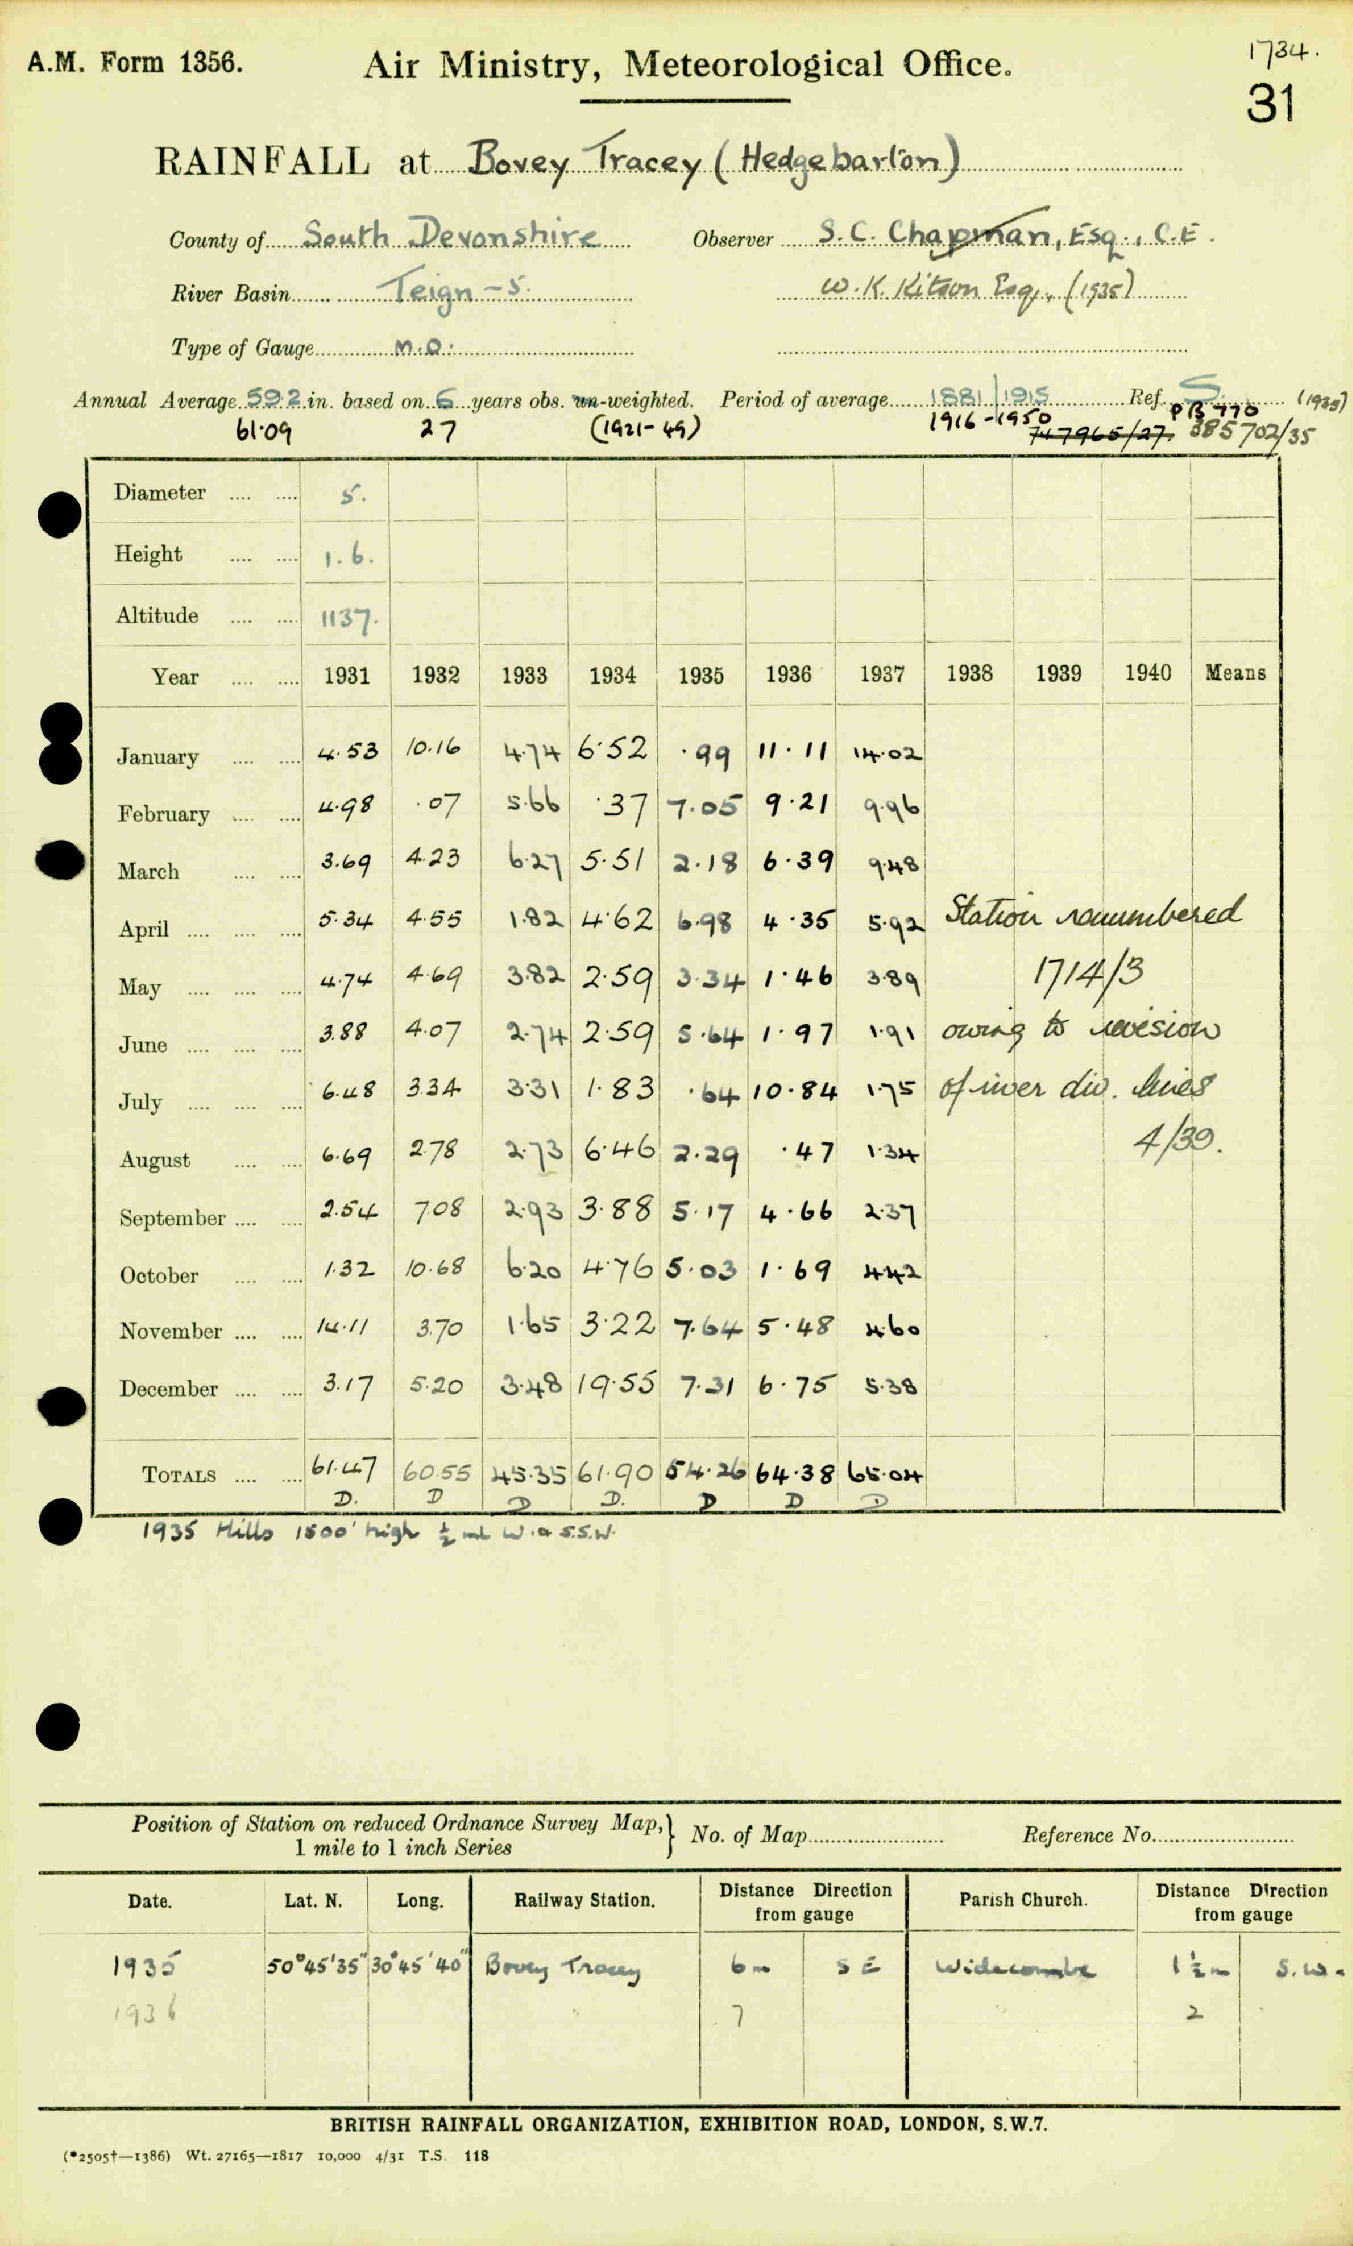 A.M. Form 1356.
Air Ministry, Meteorological Office.
1734.
31
RAINFALL at Bovey Tracey (Hedgebarton)
County of South Devonshire Observer S.C. Chapman, Esq., C.E.
River Basin Teign - 5. W.K. Kitson Esq., (1935)
Type of Gauge M.O.
Annual Average 59.2 in. based on 6 years obs. un-weighted. Period of average 1881/1915 Ref. S. (1935)
61.09 27 (1921-49) 1916-1950 747965/27. PB 770 385702/35
Diameter 5.
Height 1.6.
Altitude 1137.
Year 1931 1932 1933 1934 1935 1936 1937 1938 1939 1940 Means
January 4.53 10.16 4.74 6.52 .99 11.11 14.02
February 4.98 .07 5.66 .37 7.05 9.21 9.96
March 3.69 4.23 6.27 5.51 2.18 6.39 9.48
April 5.34 4.55 1.82 4.62 6.98 4.35 5.92 Station renumbered
May 4.74 4.69 3.82 2.59 3.34 1.46 3.89 1714/3
June 3.88 4.07 2.74 2.59 5.64 1.97 1.91 owing to revision
July 6.48 3.34 3.31 1.83 .64 10.84 1.75 of river div. lines
August 6.69 2.78 2.73 6.46 2.29 .47 1.34 4/39.
September 2.54 7.08 2.93 3.88 5.17 4.66 2.37
October 1.32 10.68 6.20 4.76 5.03 1.69 4.42
November 14.11 3.70 1.65 3.22 7.64 5.48 4.60
December 3.17 5.20 3.48 19.55 7.31 6.75 5.38
TOTALS 61.47 60.55 45.35 61.90 54.26 64.38 65.04
D. D D D. D D D
1935 Hills 1500' high ½ ml W. & S.S.W.
Position of Station on reduced Ordnance Survey Map, 1 mile to 1 inch Series } No. of Map Reference No.
Date. Lat. N. Long. Railway Station. Distance Direction from gauge Parish Church. Distance Direction from gauge
1935 50°45'35" 30°45'40" Bovey Tracey 6m SE Widecombe 1½m S.W.
1936 " 7 " 2
BRITISH RAINFALL ORGANIZATION, EXHIBITION ROAD, LONDON, S.W.7.
(*2505†—1386) Wt. 27165—1817 10,000 4/31 T.S. 118